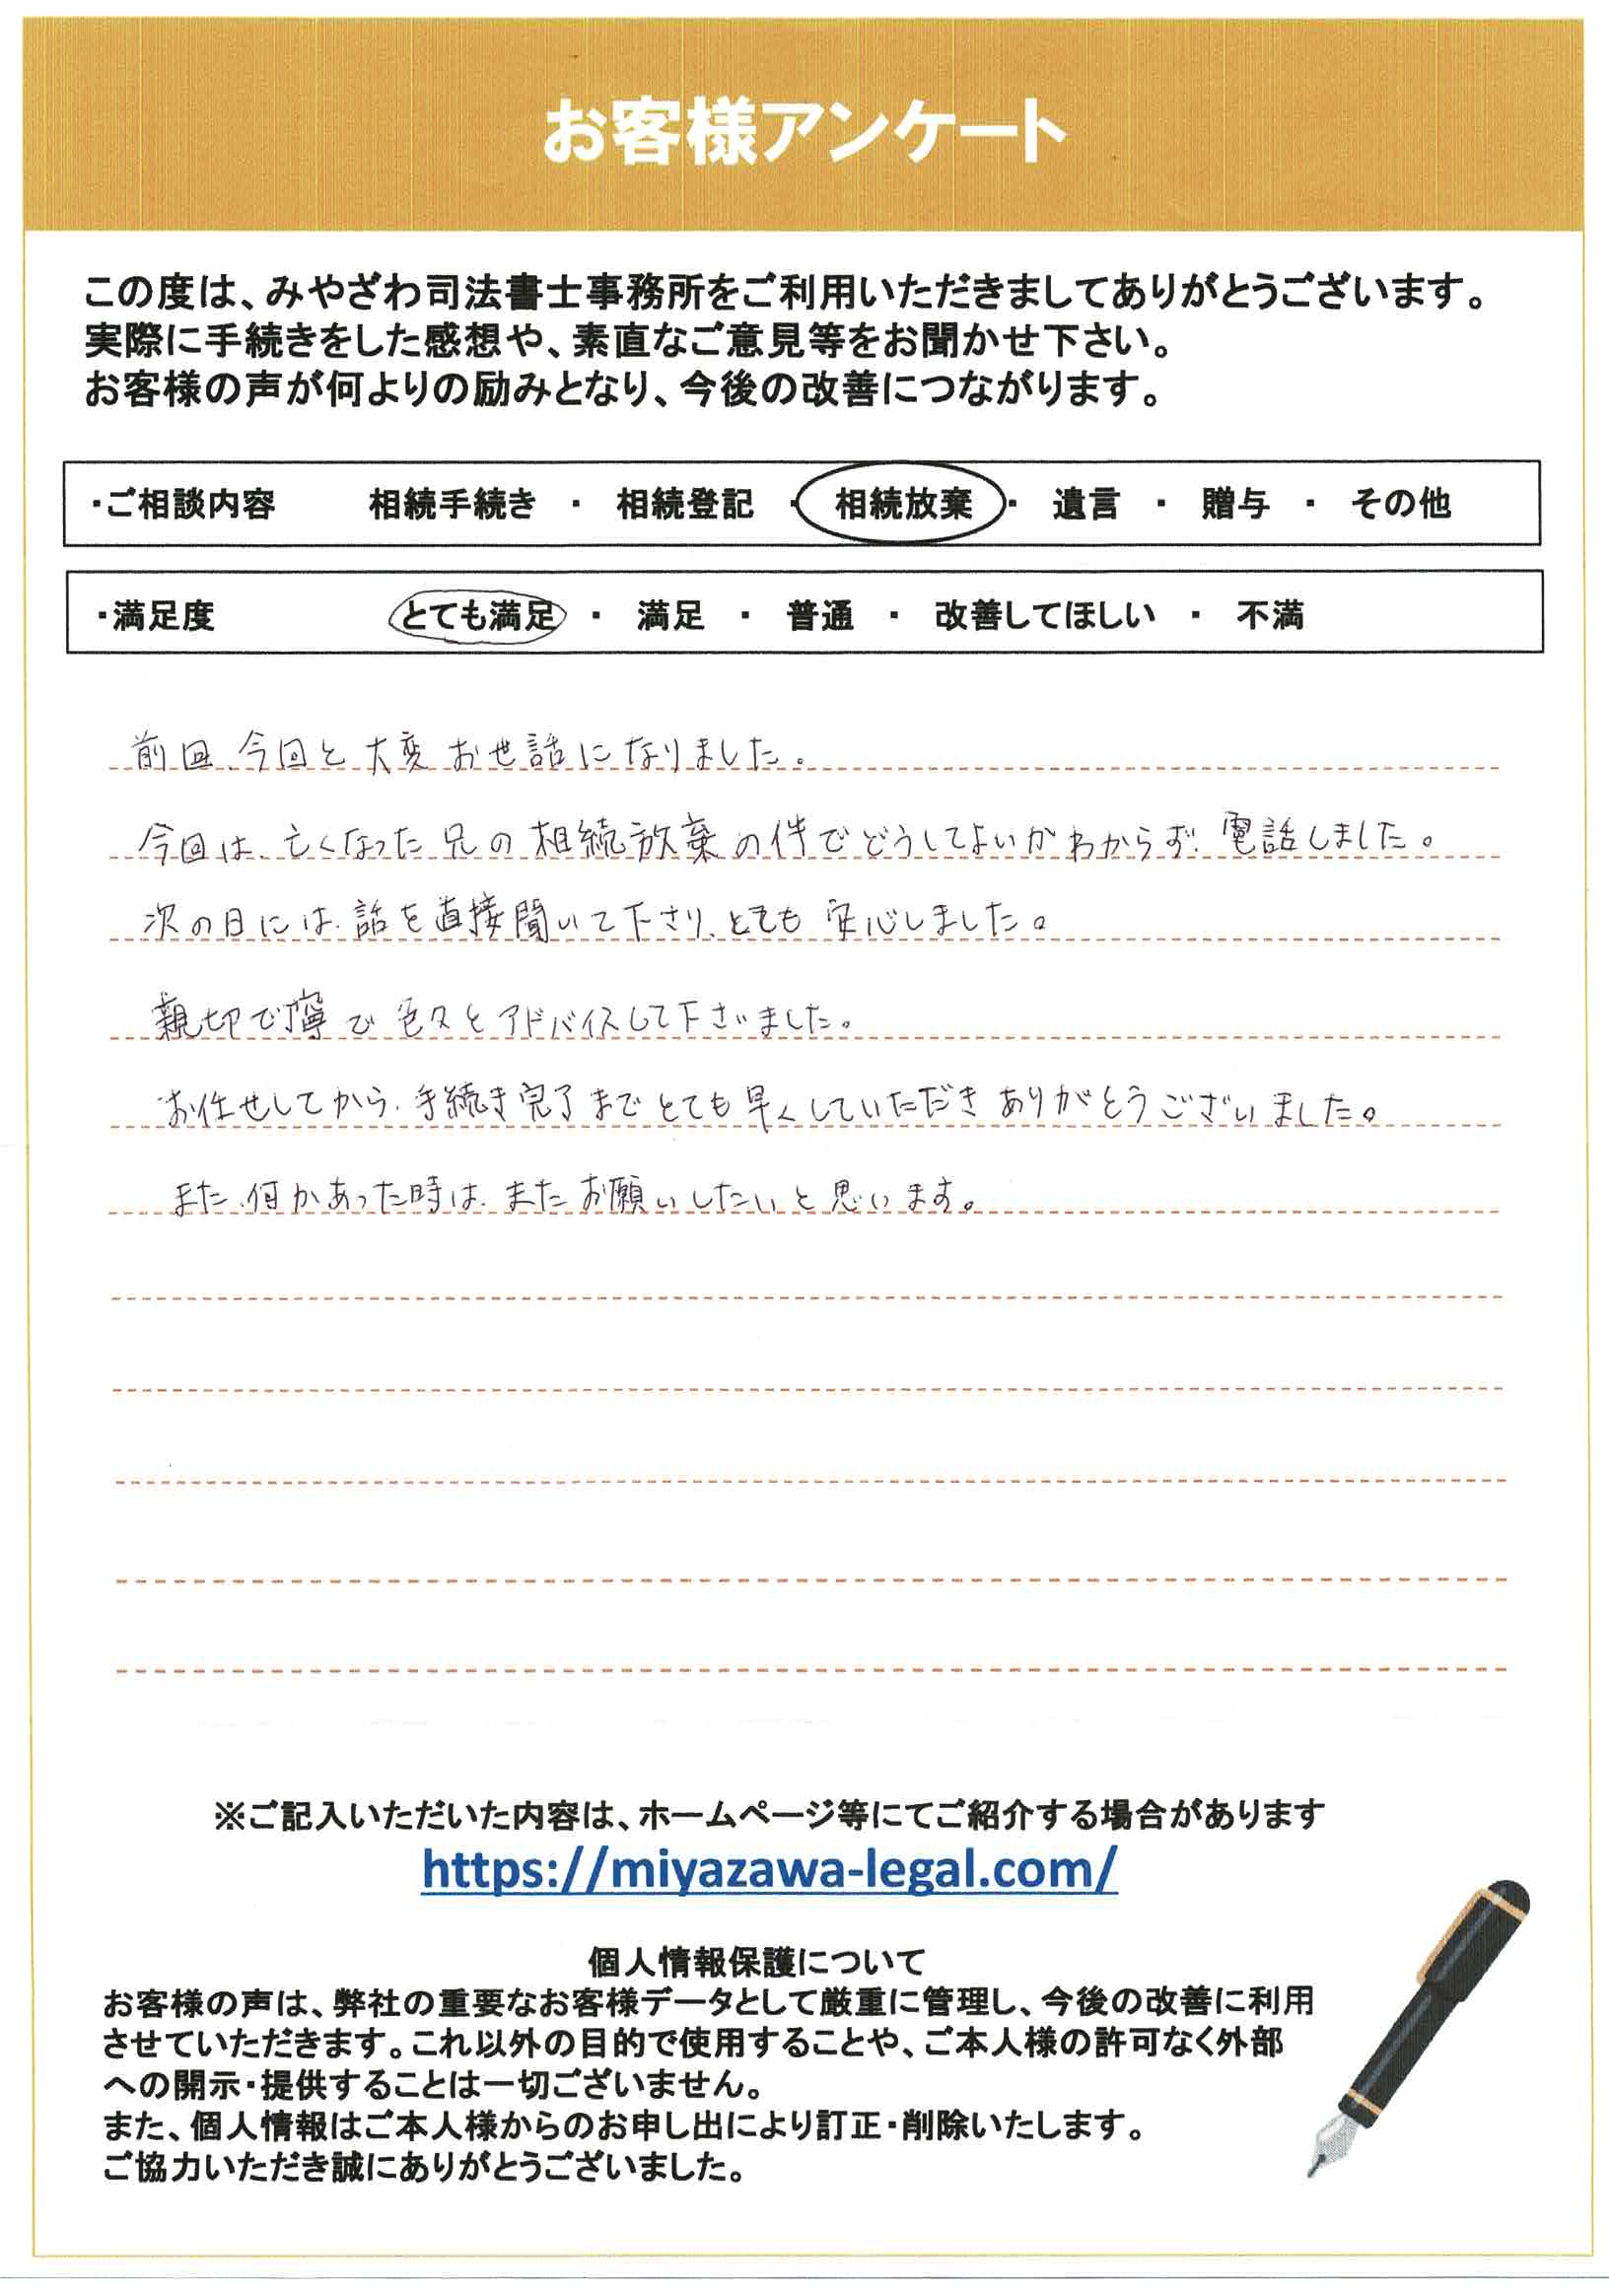 お客様アンケート
この度は、みやざわ司法書士事務所をご利用いただきましてありがとうございます。
実際に手続きをした感想や、素直なご意見等をお聞かせ下さい。
お客様の声が何よりの励みとなり、今後の改善につながります。
・ご相談内容 相続手続き ・ 相続登記 ・ 相続放棄 ・ 遺言 ・ 贈与 ・ その他
・満足度 とても満足 ・ 満足 ・ 普通 ・ 改善してほしい ・ 不満
前回、今回と大変お世話になりました。
今回は、亡くなった兄の相続放棄の件でどうしてよいかわからず、電話しました。
次の日には、話を直接聞いて下さり、とても安心しました。
親切で寧で色々とアドバイスして下さいました。
お任せしてから、手続き完了までとても早くしていただきありがとうございました。
また、何かあった時は、またお願いしたいと思います。
※ご記入いただいた内容は、ホームページ等にてご紹介する場合があります
https://miyazawa-legal.com/
個人情報保護について
お客様の声は、弊社の重要なお客様データとして厳重に管理し、今後の改善に利用
させていただきます。これ以外の目的で使用することや、ご本人様の許可なく外部
への開示・提供することは一切ございません。
また、個人情報はご本人様からのお申し出により訂正・削除いたします。
ご協力いただき誠にありがとうございました。